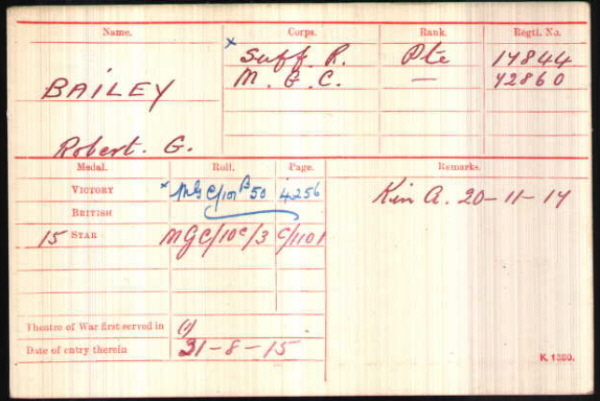 Name. Corps. Rank. Regtl. No.
BAILEY x Suff. R. Pte 17844
M. G. C. — 42860
Robert. G.
Medal. Roll. Page. Remarks.
VICTORY x MGC/101 B 50 4256 Kin A. 20-11-17
BRITISH
15 STAR MGC/10C/3 C/1101
Theatre of War first served in (1)
Date of entry therein 31-8-15
K 1380.